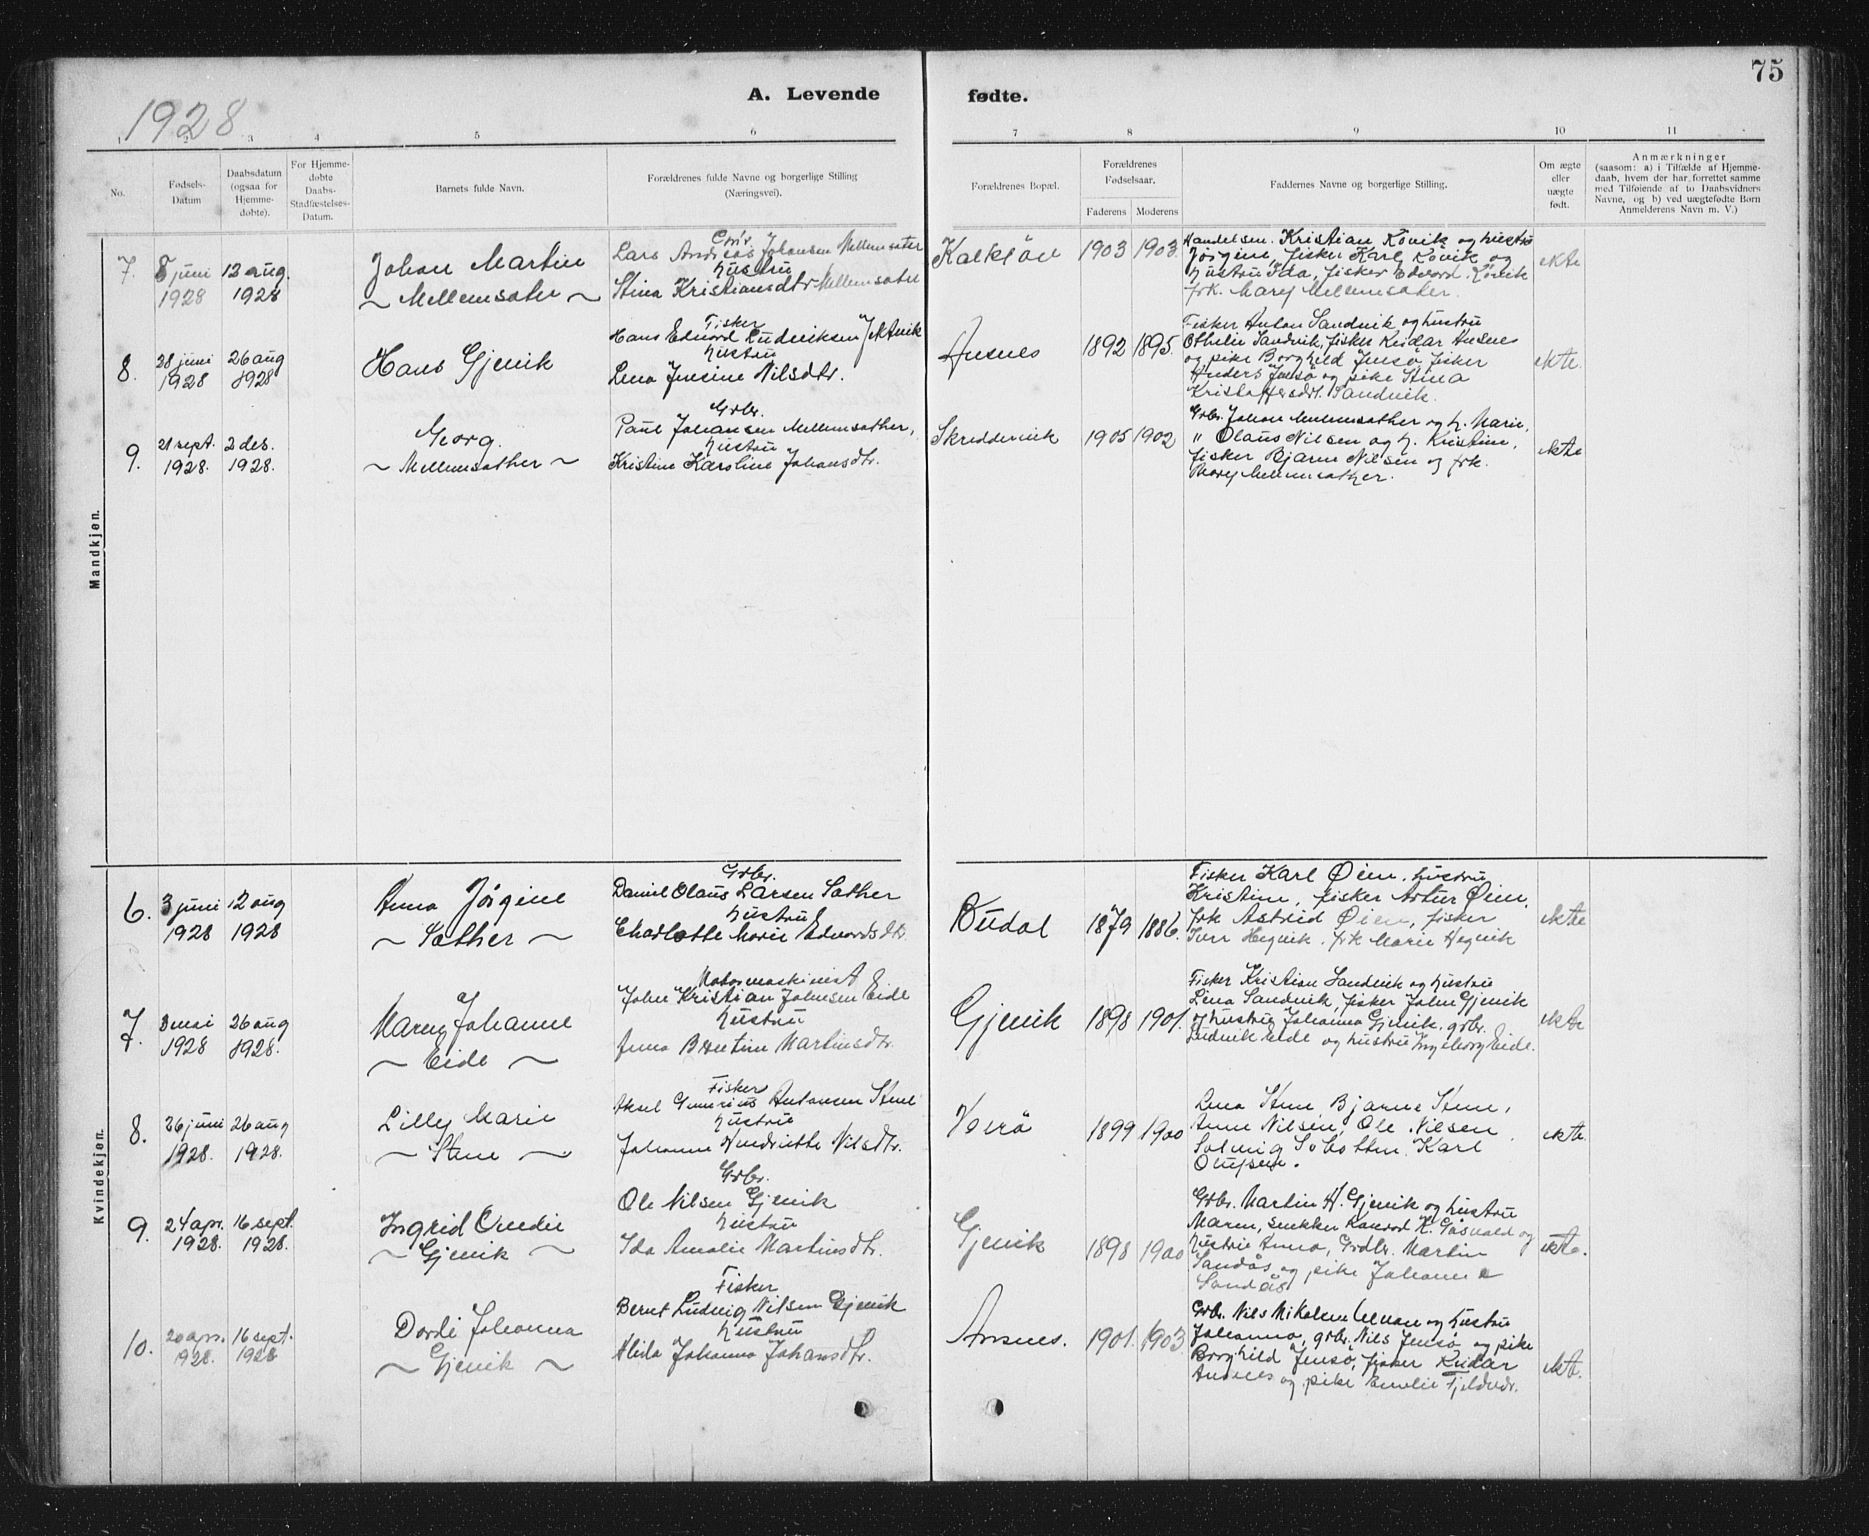 75
1928
A. Levende fødte.
1 2 3 4 5 6 7 8 9 10 11
No.
Fødsels-
Datum
Daabsdatum
(ogsaa for
Hjemme-
døbte).
For Hjemme-
døbte
Daabs-
Stadfæstelses-
Datum.
Barnets fulde Navn.
Forældrenes fulde Navne og borgerlige Stilling
(Næringsvei).
Forældrenes Bopæl.
Forældrenes
Fødselsaar.
Faderens Moderens
Faddernes Navne og borgerlige Stilling.
Om ægte
eller
uægte
født.
Anmærkninger
(saasom: a) i Tilfælde af Hjemme-
daab, hvem der har forrettet samme
med Tilføiende af to Daabsvidners
Navne, og b) ved uægtefødte Børn
Anmelderens Navn m. V.)
Mandkjøn.
7. 8 juni 1928
12 aug. 1928
Johan Martin
~ Mellemsæter ~
Lars Andreas Johansen Mellemsæter
hustru
Stina Kristiansdtr Mellemsæter
1903 1903.
Handelsm. Kristian Røvik og hustru
Jørgine, fisker Karl Røvik og
hustru Ida, fisker Edvard Røvik
frk. Mary Mellemsæter.
ekte
8. 28 juni 1928
26 aug 1928
Hans Gjevik
Fisker
Hans Edvard Ludviksen
hustru
Lena Jensine Nilsdtr.
1892 1895.
Fisker Anton Sandvik og hustru
Othelie Sandvik, fisker Reidar Aasnes
og pike Borghild Jensø, fisker
Anders Jensø og pike Stina
Kristoffersdtr. Sandvik.
ekte.
9. 21 sept. 1928.
2 des. 1928.
Georg
~ Mellemsæther ~
Grbr.
Paul Johansen Mellemsæther,
hustru
Kristine Karoline Johansdtr.
Skreddervik
1905 1902
Grbr. Johan Mellemsæther og h. Marie,
" Olaus Nilsen og h. Kristine,
fisker Bjarne Nilsen og frk.
Mary Mellemsæther.
ekte
Kvindekjøn.
6. 3 juni 1928
12 aug 1928
Anna Jørgine
~ Sæther ~
Grbr.
Daniel Olaus Larsen Sæther
hustru
Charlotte Marie Edvardsdtr.
Budal
1879 1886.
Fisker Karl Øien, hustru
Kristine, fisker Artur Øien,
frk Astrid Øien, fisker
Iver Hegvik, frk Marie Hegvik
ekte
7. 8 mai 1928
26 aug 1928.
Mary Johanne
~ Eide ~
Motormaskinist
Johan Kristian Johnsen Eide
hustru
Anna Martinsdtr.
Gjevik
1898 1901.
Fisker Kristian Sandvik og hustru
Lina Sandvik, fisker John Gjevik
og hustru Johanna Gjevik, grbr.
Ludvik Eide og hustru Ingeborg Eide.
ekte
8. 26 juni 1928.
26 aug 1928.
Lilly Marie
~ Stene ~
Fisker
Aksel Antonsen Stene
hustru
Johanne Hendriette Nilsdtr.
Veerø
1899 1900
Lena Stene, Bjarne Stene,
Anne Nilsen, Ole Nilsen
Solveig Karl
Olufsen.
ekte.
9. 24 apr. 1928.
16 sept. 1928.
Ingrid Omdie
~ Gjevik ~
Grbr.
Ole Nilsen Gjevik
hustru
Ida Amalie Martinsdtr.
Gjevik
1898 1900
Grbr. Martin H. Gjevik og hustru
Maren, snekker Konrad K. Gåsvald og
hustru Anna, Grdbr. Martin
Sandås og pike Johanne
Sandås
ekte.
10. 20 apr. 1928.
16 sept. 1928
Dordi Johanna
~ Gjevik ~
Fisker
Bernt Ludvig Nilsen Gjevik
hustru
Alida Johanna Johansdtr.
1901. 1903
Grbr. Nils Mikalsen og hustru
Johanna, grbr. Nils Jensø og pike
Borghild Jensø, fisker Reidar
og pike Emelie Fjeldvær.
ekte.